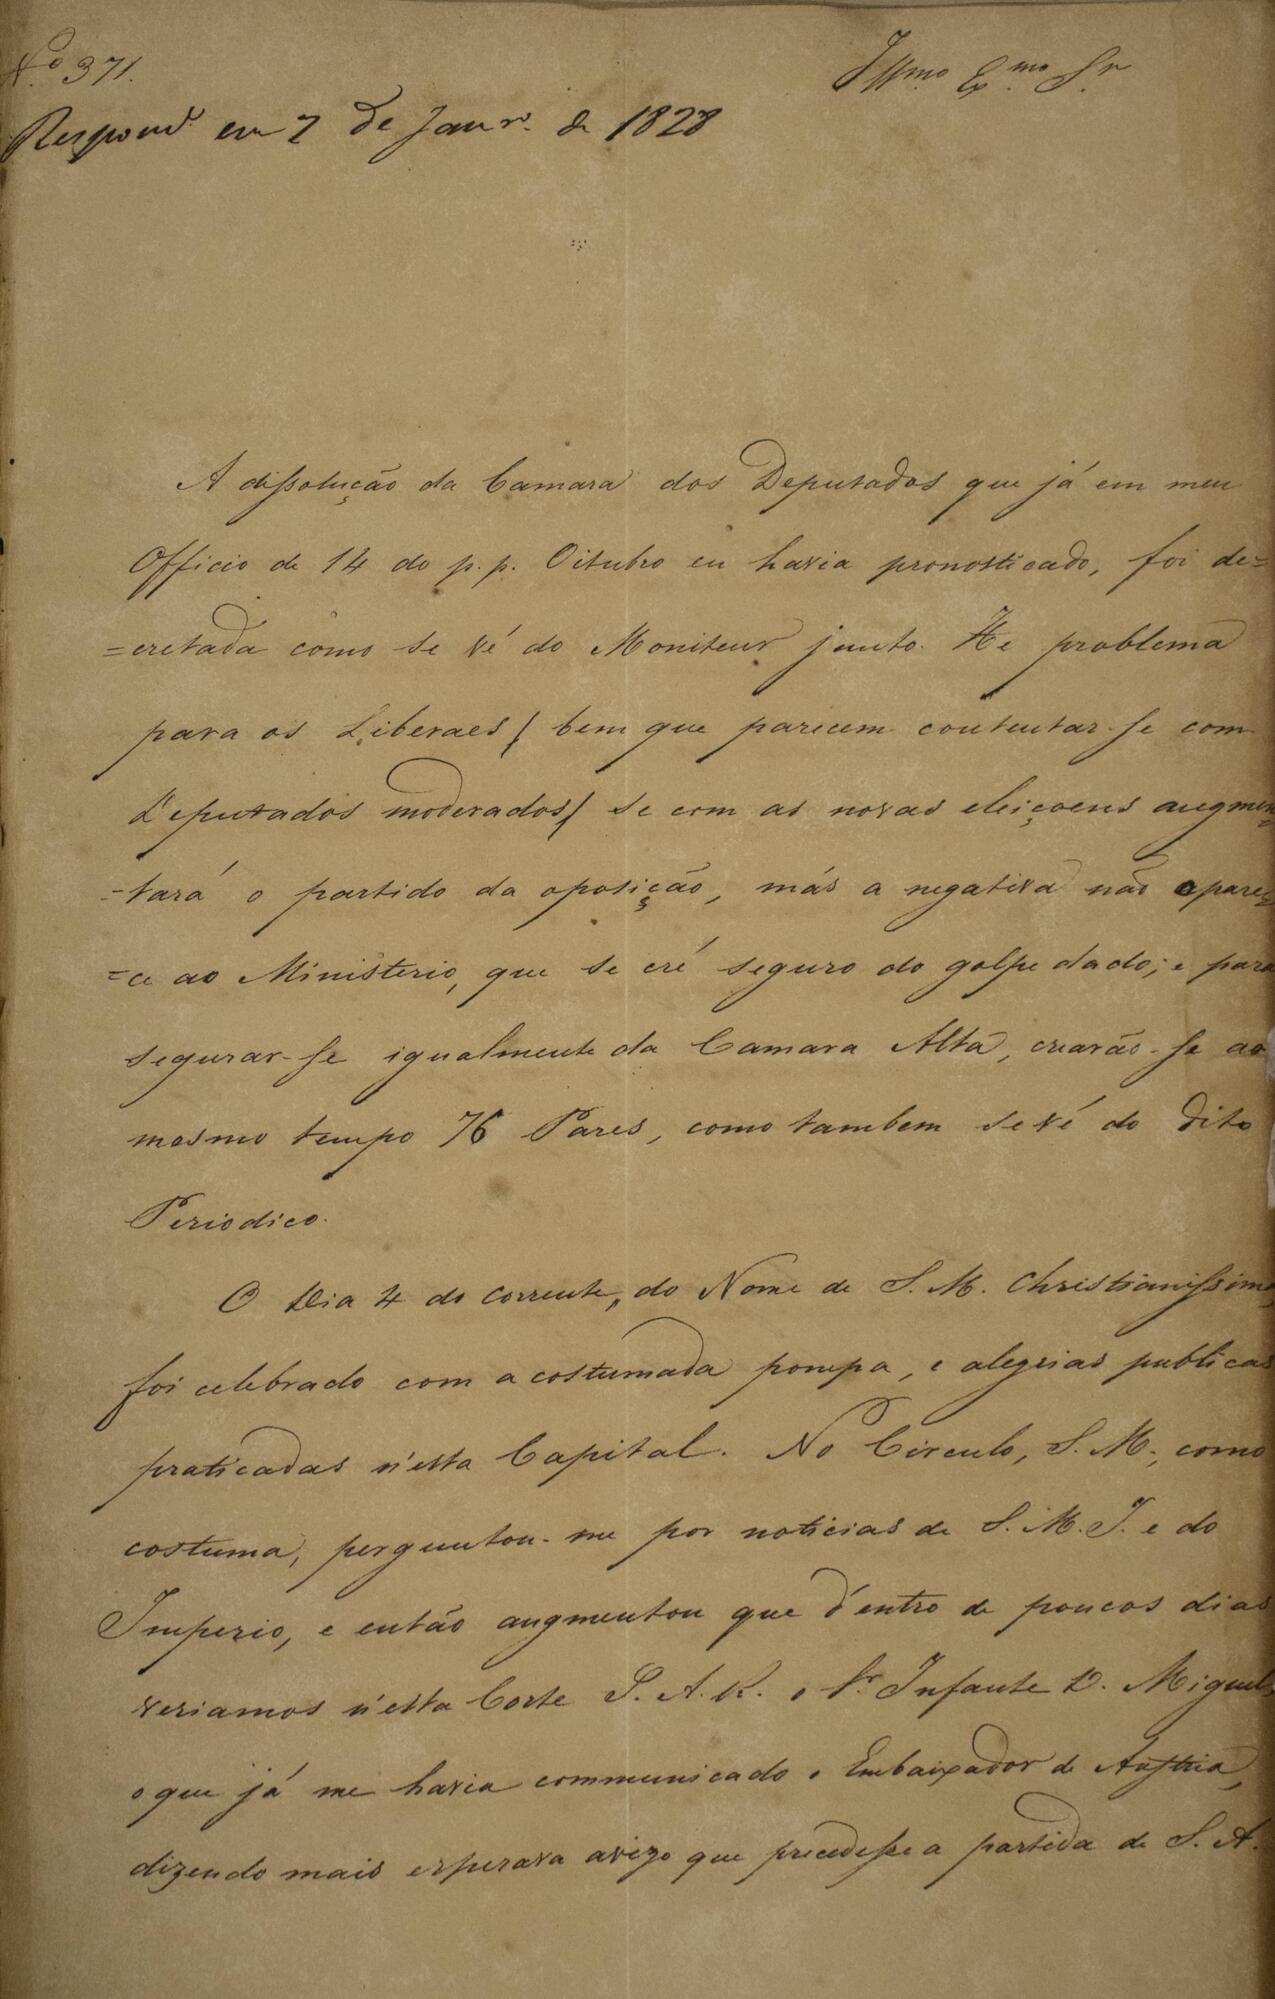 N.º 371.
Illmo. Exmo. Sr.
Respond.º em 7 de Janrº. de 1828
A dissolução da Camara dos Deputados que já em meu
Officio de 14 do p.p. Oitubro eu havia pronosticado, foi de=
=cretada como se vé do Moniteur junto. He problema
para os Liberaes / bem que parecem contentar-se com
Deputados moderados / se com as novas eleiçoens augmen=
=tará o partido da oposição, más a negativa não apare=
=ce ao Ministerio, que se cré seguro do golpe dado; e para
segurar-se igualmente da Camara Alta, crearão-se ao
mesmo tempo 76 Pares, como tambem se vé do dito
Periodico.
O Dia 4 do corrente, do Nome de S. M. Christianissima,
foi celebrado com a costumada pompa, e alegrias publicas
praticadas n'esta Capital. No Circulo, S. M., como
costuma, perguntou-me por noticias de S. M. I. e do
Imperio, e então augmentou que d'entro de poucos dias
veriamos n'esta Corte S. A. R. o Sr. Infante D. Miguel,
o que já me havia communicado o Embaixador de Austria,
dizendo mais esperava avizo que precedesse a partida de S. A.